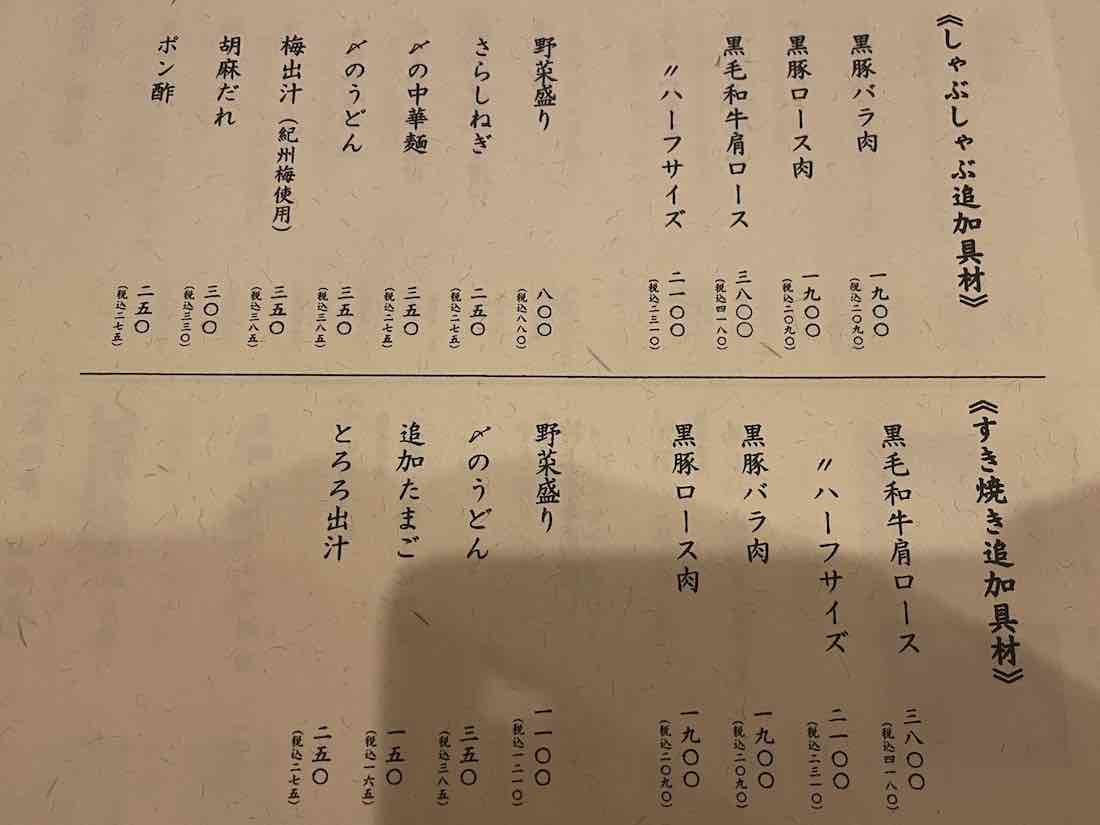 《しゃぶしゃぶ追加具材》
黒豚バラ肉 一九〇〇
(税込二〇九〇)
黒豚ロース肉 一九〇〇
(税込二〇九〇)
黒毛和牛肩ロース 三八〇〇
(税込四一八〇)
〃ハーフサイズ 二一〇〇
(税込二三一〇)
野菜盛り 八〇〇
(税込八八〇)
さらしねぎ 二五〇
(税込二七五)
〆の中華麺 三五〇
(税込二七五)
〆のうどん 三五〇
(税込三八五)
梅出汁(紀州梅使用) 三五〇
(税込三八五)
胡麻だれ 三〇〇
(税込三三〇)
ポン酢 二五〇
(税込二七五)
《すき焼き追加具材》
黒毛和牛肩ロース 三八〇〇
(税込四一八〇)
〃ハーフサイズ 二一〇〇
(税込二三一〇)
黒豚バラ肉 一九〇〇
(税込二〇九〇)
黒豚ロース肉 一九〇〇
(税込二〇九〇)
野菜盛り 一一〇〇
(税込一二一〇)
〆のうどん 三五〇
(税込三八五)
追加たまご 一五〇
(税込一六五)
とろろ出汁 二五〇
(税込二七五)